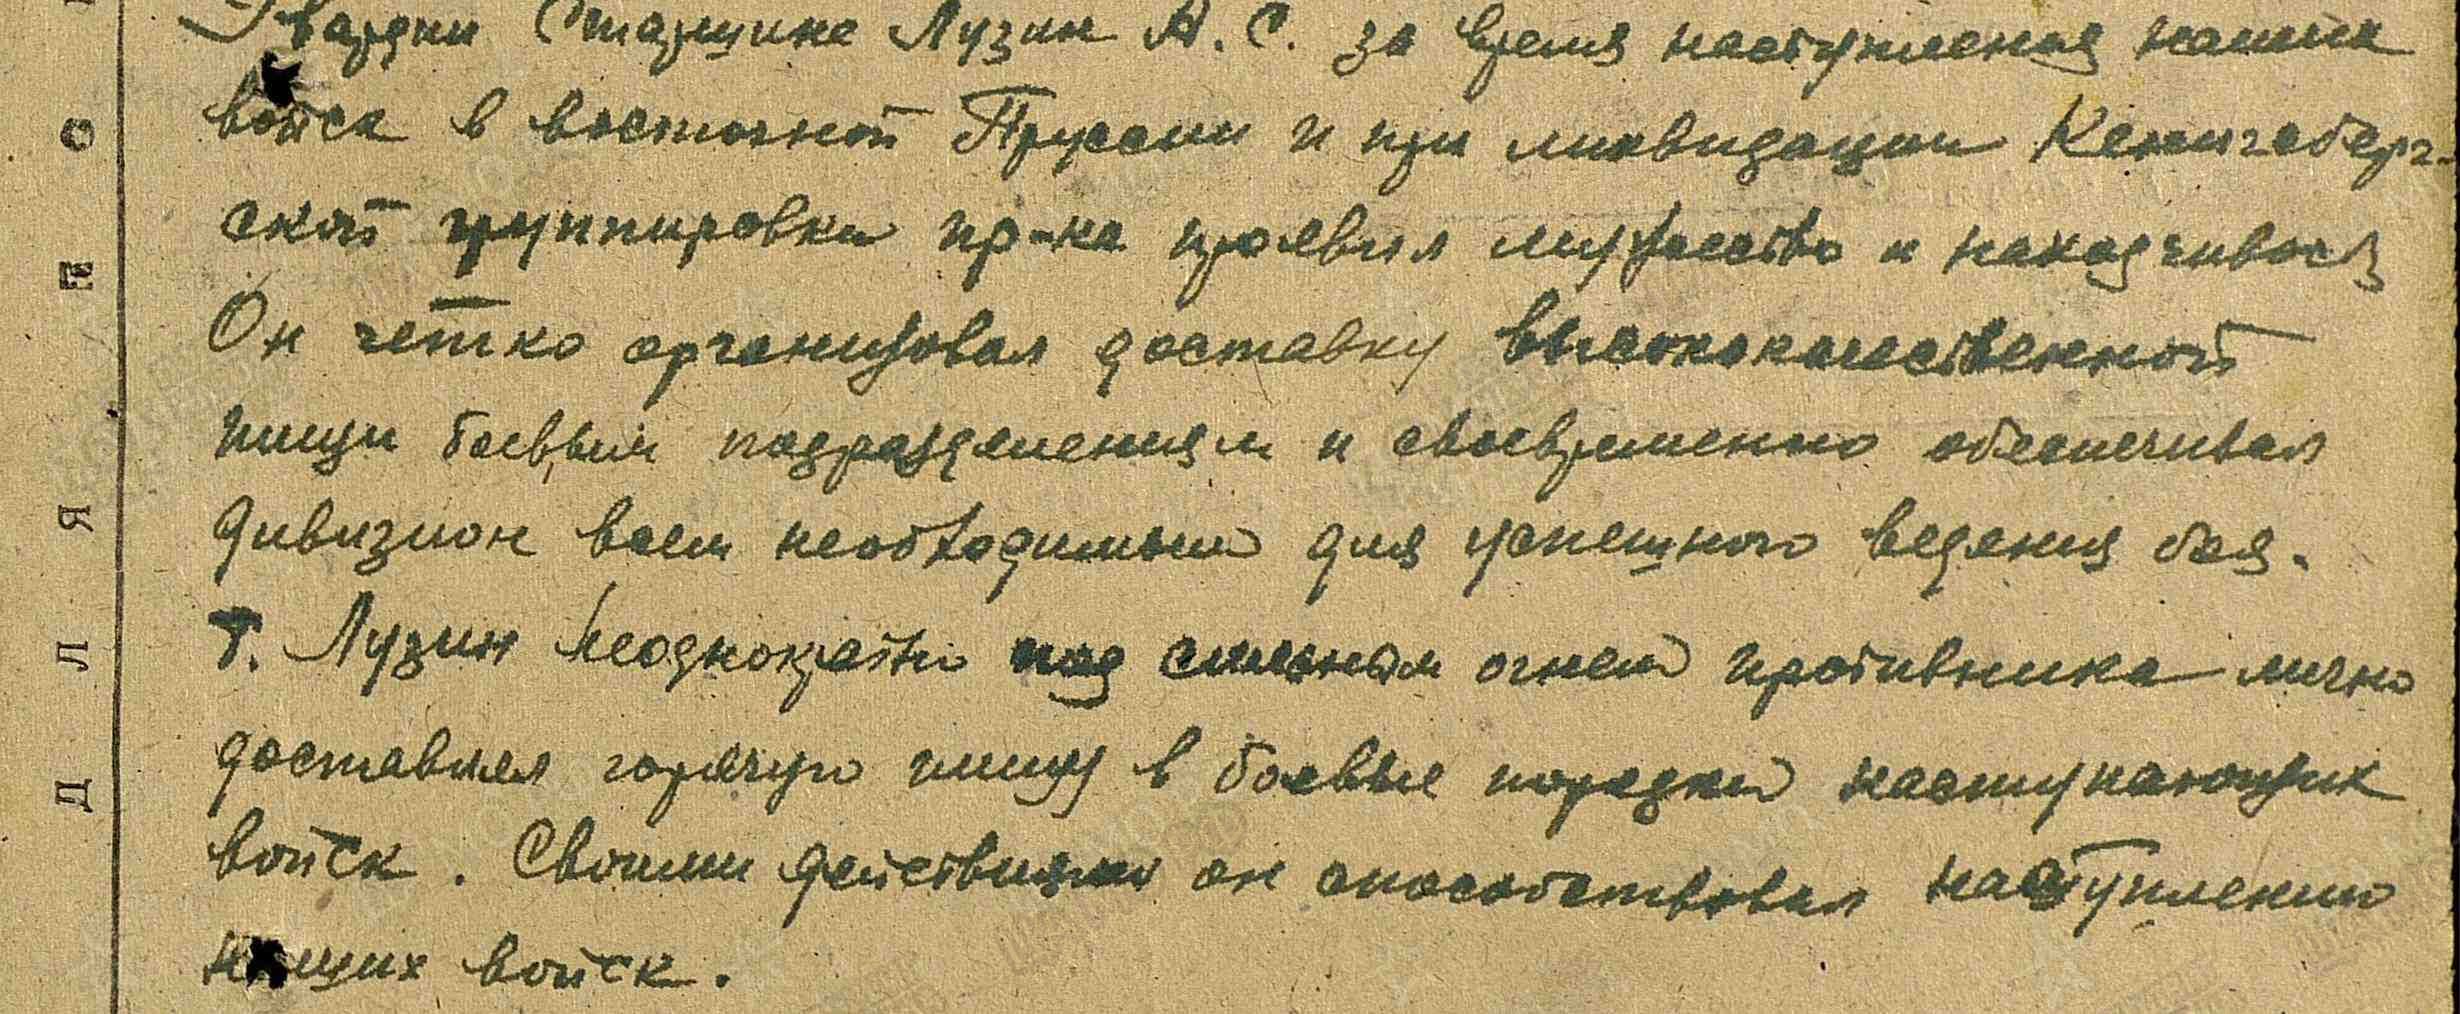 Гвардии Старшина Лузин А. С. за время наступления наших
войск в восточной Пруссии и при ликвидации Кенигсберг-
ской группировки пр-ка проявил мужество и находчивость
Он четко организовал доставку высококачественной
пищи боевым подразделениям и своевременно обеспечивал
дивизион всем необходимым для успешного ведения боя.
т. Лузин неоднократно под сильным огнем противника лично
доставлял горячую пищу в боевые порядки наступающих
войск. Своими действиями он способствовал наступлению
наших войск.
Д Л Я П О